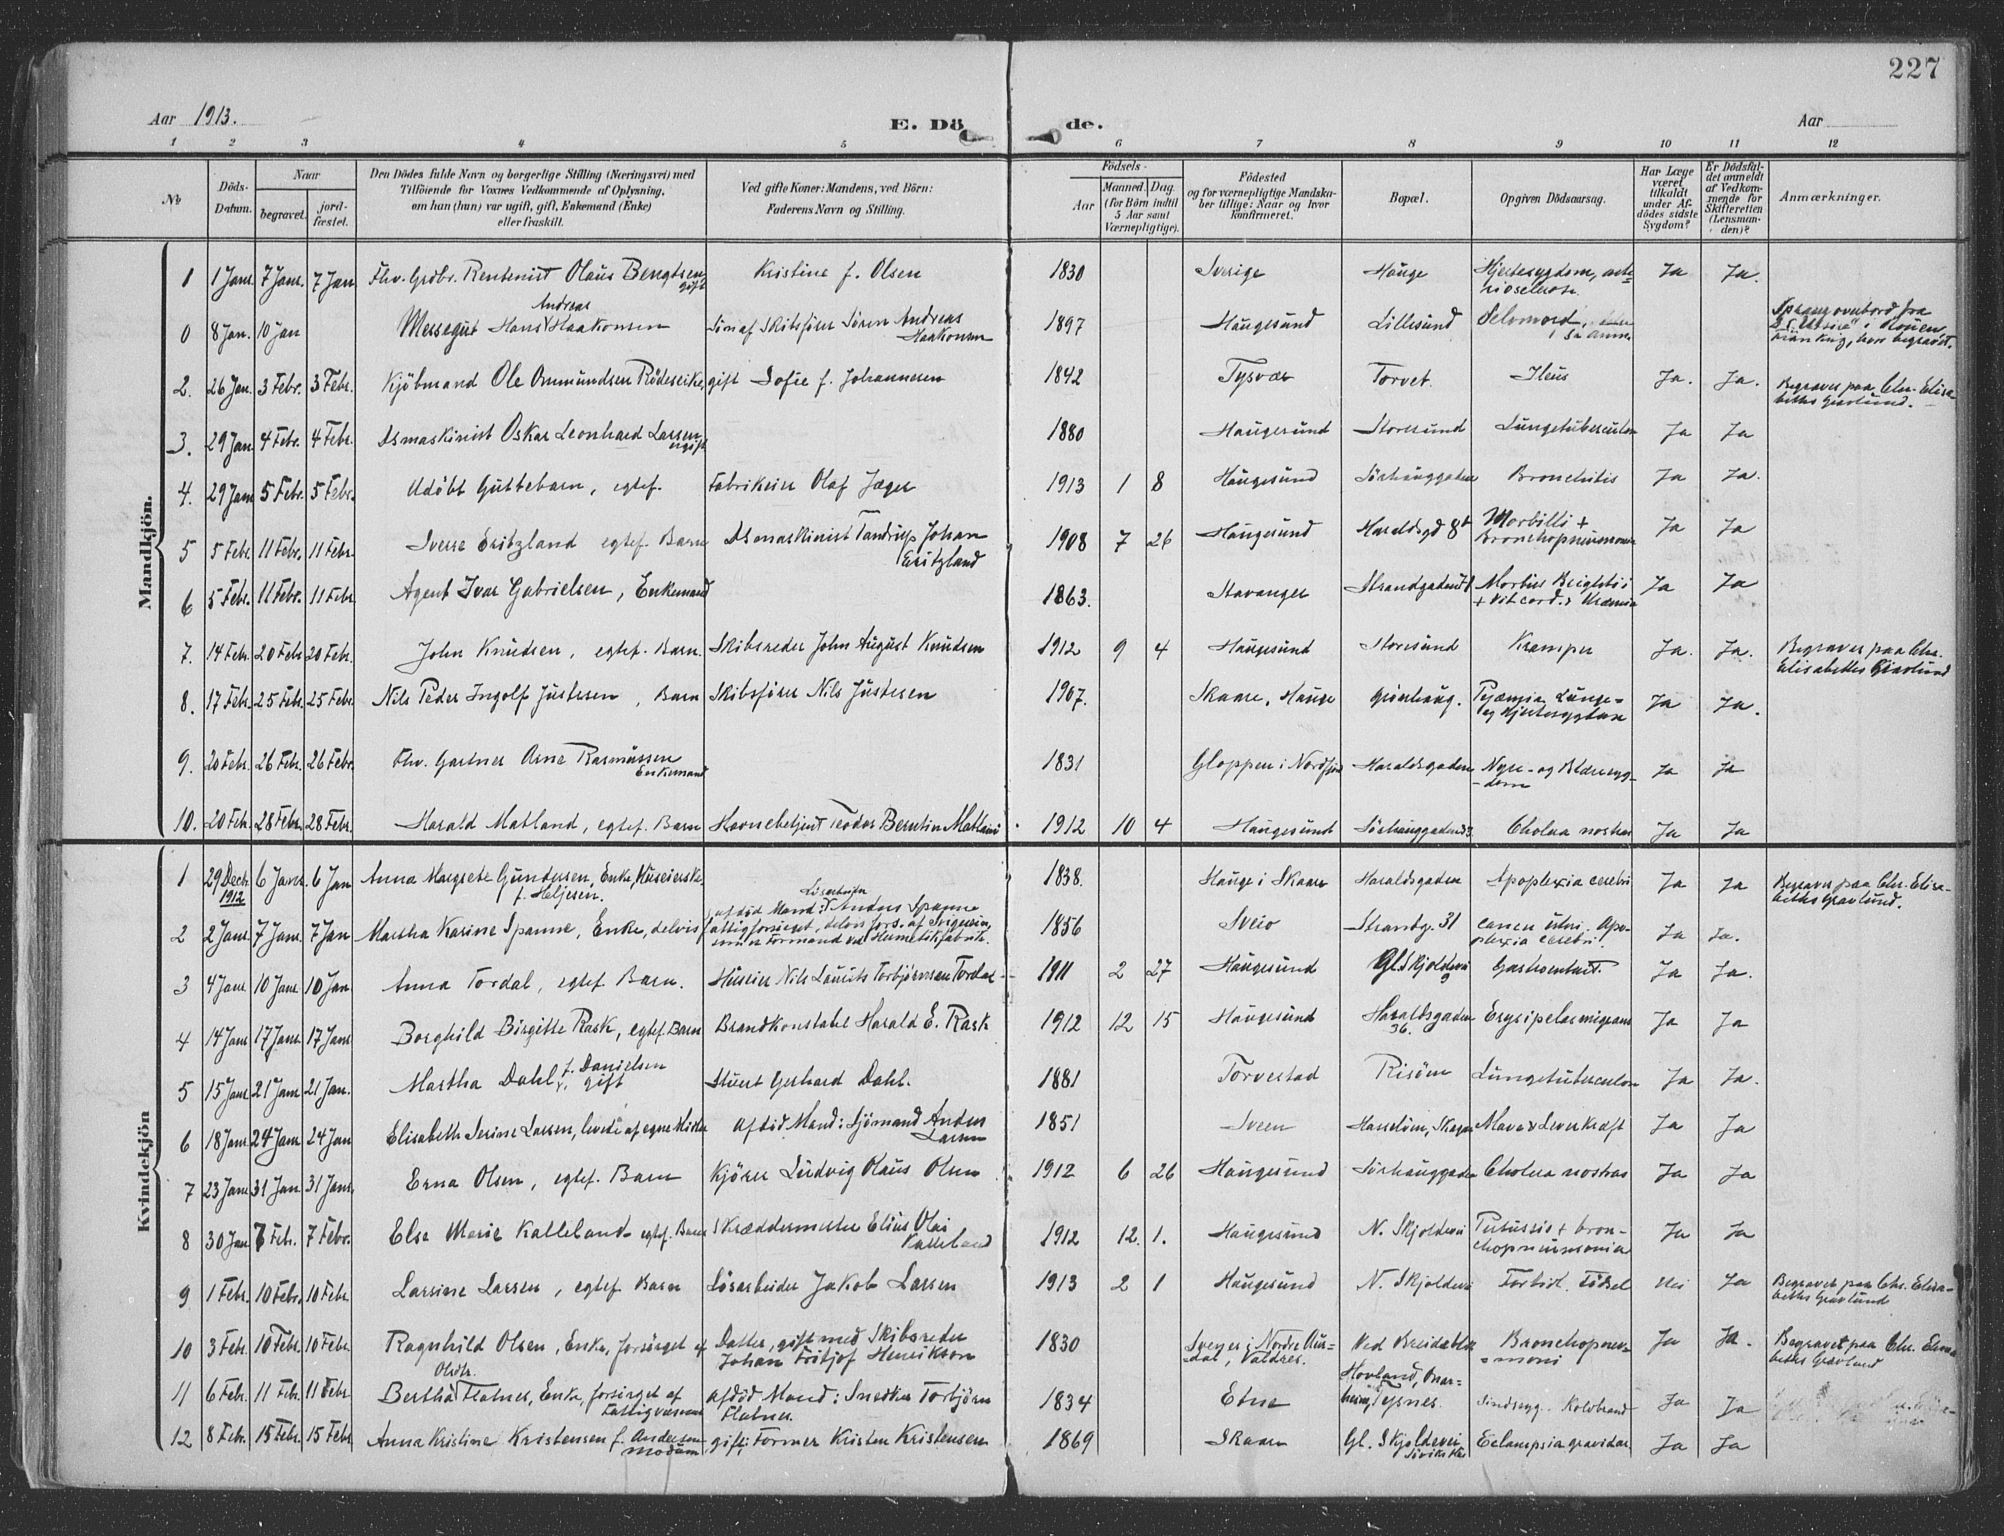 227
Aar 1913. E. Dö de. Aar
1 2 3 4 5 6 7 8 9 10 11 12
№ Döds-Datum. Naar begravet. jord-fæstet. Den Dödes fulde Navn og borgerlige Stilling (Næringsvei) med Tilföiende for Voxnes Vedkommende af Oplysning, om han (hun) var ugift, gift, Enkemand (Enke) eller fraskilt. Ved gifte Koner: Mandens, ved Börn: Faderens Navn og Stilling. Födsels- Aar Maaned. Dag. (for Börn indtil 5 Aar samt Værnepligtige). Födested og for værnepligtige Mandskaber tillige: Naar og hvor konfirmeret. Bopæl. Opgiven Dödsaarsag. Har Læge været tilkaldt under Afdödes sidste Sygdom? Er Dödsfaldet anmeldt af Vedkommende for Skifteretten (Lensmanden)? Anmærkninger.
Mandkjön.
1 1 Janr. 7 Janr. 7 Jan Fhv. Grdbr. Rentenist Olaus Bengtsen gift Kristine f. Olsen 1830 Sverige Hauge Hjertesygdom, Ja Ja.
0 8 Jan. 10 Jan Messegut Hans Andreas Haakonsen Sön af Skibsförer Sören Andreas Haakonsen 1897 Haugesund Lillesund Selvmord, Sprang overbord fra i Rouen, Frankrig, hvor begravet.
2. 26 Jan. 3 Febr. 3 Febr. Kjöbmand Ole Ommundsen Rödeseike, gift Sofie f. Johannesen 1842 Tysvær Torvet. Ileus Ja. Ja. Begravet paa Chr. Elisabeths Gravlund.
3. 29 Jan 4 Febr. 4 Febr. Dsmaskinist Oskar Leonhard Larsen ugift 1880 Haugesund Storesund Lungetuberculose Ja Ja
4. 29 Janr 5 Febr. 5 Febr. Udöbt Guttebarn, egtef. Fabrikeier Olaf Jæger 1913 1 8 Haugesund Sörhauggaden Bronchitis Ja Ja.
5 5 Febr. 11 Febr. 11 Febr. Sverre Eritzland egtef. Barn Dsmaskinist Tandrup Johan Eritzland 1908 7 26 Haugesund Haraldsgd 8 Morbilli + Bronchopneumonie Ja Ja
6 5 Febr. 11 Febr. 11 Febr. Agent Ivar Gabrielsen, Enkemand 1863. Stavanger Strandgaden Morbus Brightii + Vit. cord. Uræmia Ja Ja
7. 14 Febr. 20 Febr. 20 Febr. John Knudsen, egtef. Barn. Skibsreder John August Knudsen 1912 9 4 Haugesund Storesund Kramper Ja. Ja. Begravet paa Chr. Elisabeths Gravlund
8. 17 Febr. 25 Febr. 25 Febr. Nils Peder Ingolf Justesen, Barn Skibsförer Nils Justesen 1907. Skaare, Hauge Grönhaug. Pyæmia Lunge- og Hjertesygdom Ja Ja.
9. 20 Febr. 26 Febr. 26 Febr. Fhv. Gartner Arne Rasmussen Enkemand 1831 Gloppen i Nordfjord Haraldsgaden Nyre- og Blæresygdom Ja Ja
10. 20 Febr. 28 Febr. 28 Febr. Harald Matland, egtef. Barn Havnebetjent Teodor Berntin Matland 1912 10 4 Haugesund Sörhauggaden Cholera nostras Ja Ja
Kvindekjön
1 29 Decb. 1912 6 Janr. 6 Jan Anna Margrete Gundersen, Enke, Huseierske, f. Heljesen. 1838. Hauge i Skaare Haraldsgaden Apoplexia cerebri Ja Ja Begravet paa Chr. Elisabeths Gravlund.
2 2 Janr. 7 Janr. 7 Jan Martha Karine Spanne, Enke, delvis fattigforsörget, delvis fors. af Svigersön, som er Formand ved Hermetikfabrik. afdöd Mand: Lösarbeider Anders Spanne 1856 Sveio Strandg. 31 cancer uteri. Apoplexia cerebri. Ja Ja.
3 4 Janr 10 Janr 10 Jan Anna Tordal, egtef. Barn. Huseier Nils Laurits Torbjörnsen Tordal 1911 2 27 Haugesund Gl. Skjoldevei 9 Gastroenterit. Ja Ja.
4 14 Janr 17 Janr. 17 Janr Borghild Birgitte Rask, egtef. Barn Brandkonstabel Harald E. Rask 1912 12 15 Haugesund Haraldsgaden 36. Erysipelas migrans Ja Ja
5 15 Janr 21 Janr 21 Jan. Martha Dahl, f. Danielsen gift Stuert Gerhard Dahl. 1881 Torvestad Risöen Lungetuberculose Ja Ja.
6 18 Janr 24 Janr 24 Jan Elisabeth Serine Larsen, levede af egne Midler afdöd Mand: Sjömand Anders Larsen 1851 Sveen Hasselöen, Skaare Mave & Leverkræft Ja Ja
7 23 Janr 31 Jan 31 Janr. Erna Olsen, egtef. Barn Kjörer Ludvig Olaus Olsen 1912 6 26 Haugesund Sörhauggaden Cholera nostras Ja Ja
8 30 Jan 7 Febr. 7 Febr. Else Marie Kalleland egtef. Barn Skræddermester Elius Olai Kalleland 1912 12. 1. Haugesund N. Skjoldevei Pertussis + bronchopneumonia Ja Ja
9 1 Febr. 10 Febr. 10 Febr. Larsine Larsen, egtef. Barn Lösarbeider Jakob Larsen 1913 2 1 Haugesund N. Skjoldevei For tidl. Födsel Nei Ja Begravet paa Chr. Elisabeths Gravlund
10 3 Febr. 10 Febr. 10 Febr. Ragnhild Olsen, Enke, forsörget af Datter, gift med Skibsreder Johan Fritjof Henrikson 1830 i Nordre Aurdal, Valdres. Ved Breidablik Bronchopneumoni Ja Ja. Begravet paa Chr. Elisabeths Gravlund
11 6 Febr. 11 Febr. 11 Febr. Bertha Olsdtr. Flatnes, Enke, forsörget af Fattigvæsenet afdöd Mand: Snedker Torbjörn Flatnes. 1834 Etne Hovland, Onarheim, Tysnes. Sindssyg. Koldbrand Ja Ja
12 8 Febr. 15 Febr. 15 Febr. Anna Kristine Kristensen f. Andersen Modum gift: Former Kristen Kristensen 1869 Skaare Gl. Skjoldevei Eclampsia gravidar. Ja Ja